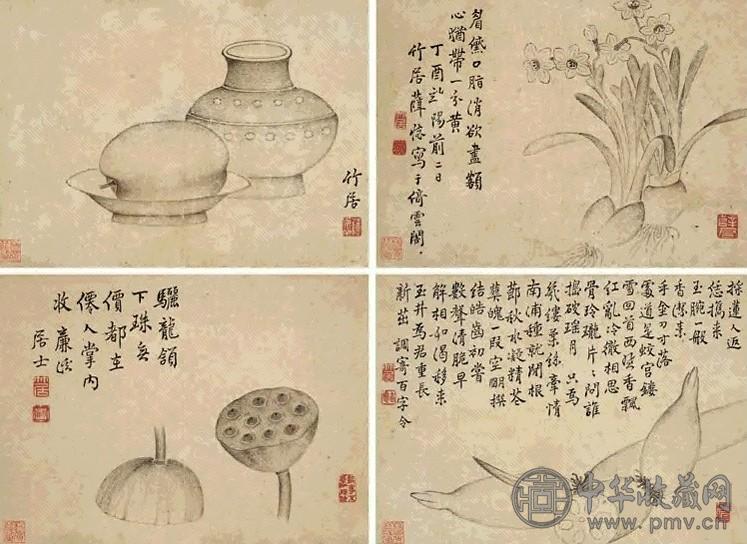 竹居
眉黛口脂消欲盡額
心猶帶一分黃
丁酉陽前二日
竹居薛懷寫于倚雲閣
驪龍頷
下珠無
價都在
僊人掌內
收 廉
居士
採蓮人返
恁攜來
玉腕一般
香潔末
手金刀寸落
處道是蛟宮鏤
雪回首西香飄
紅亂冷微相思
骨玲瓏片片問誰
搗破瑤月 只為
幾縷柔絲牽情
南浦種就閒根
節秋水凝精
魄一段空明撰
結皓齒初嘗
數聲清脆早
解相如渴移來
玉井為君重長
新茁 調寄百字令
中华收藏网
www.pmv.cn